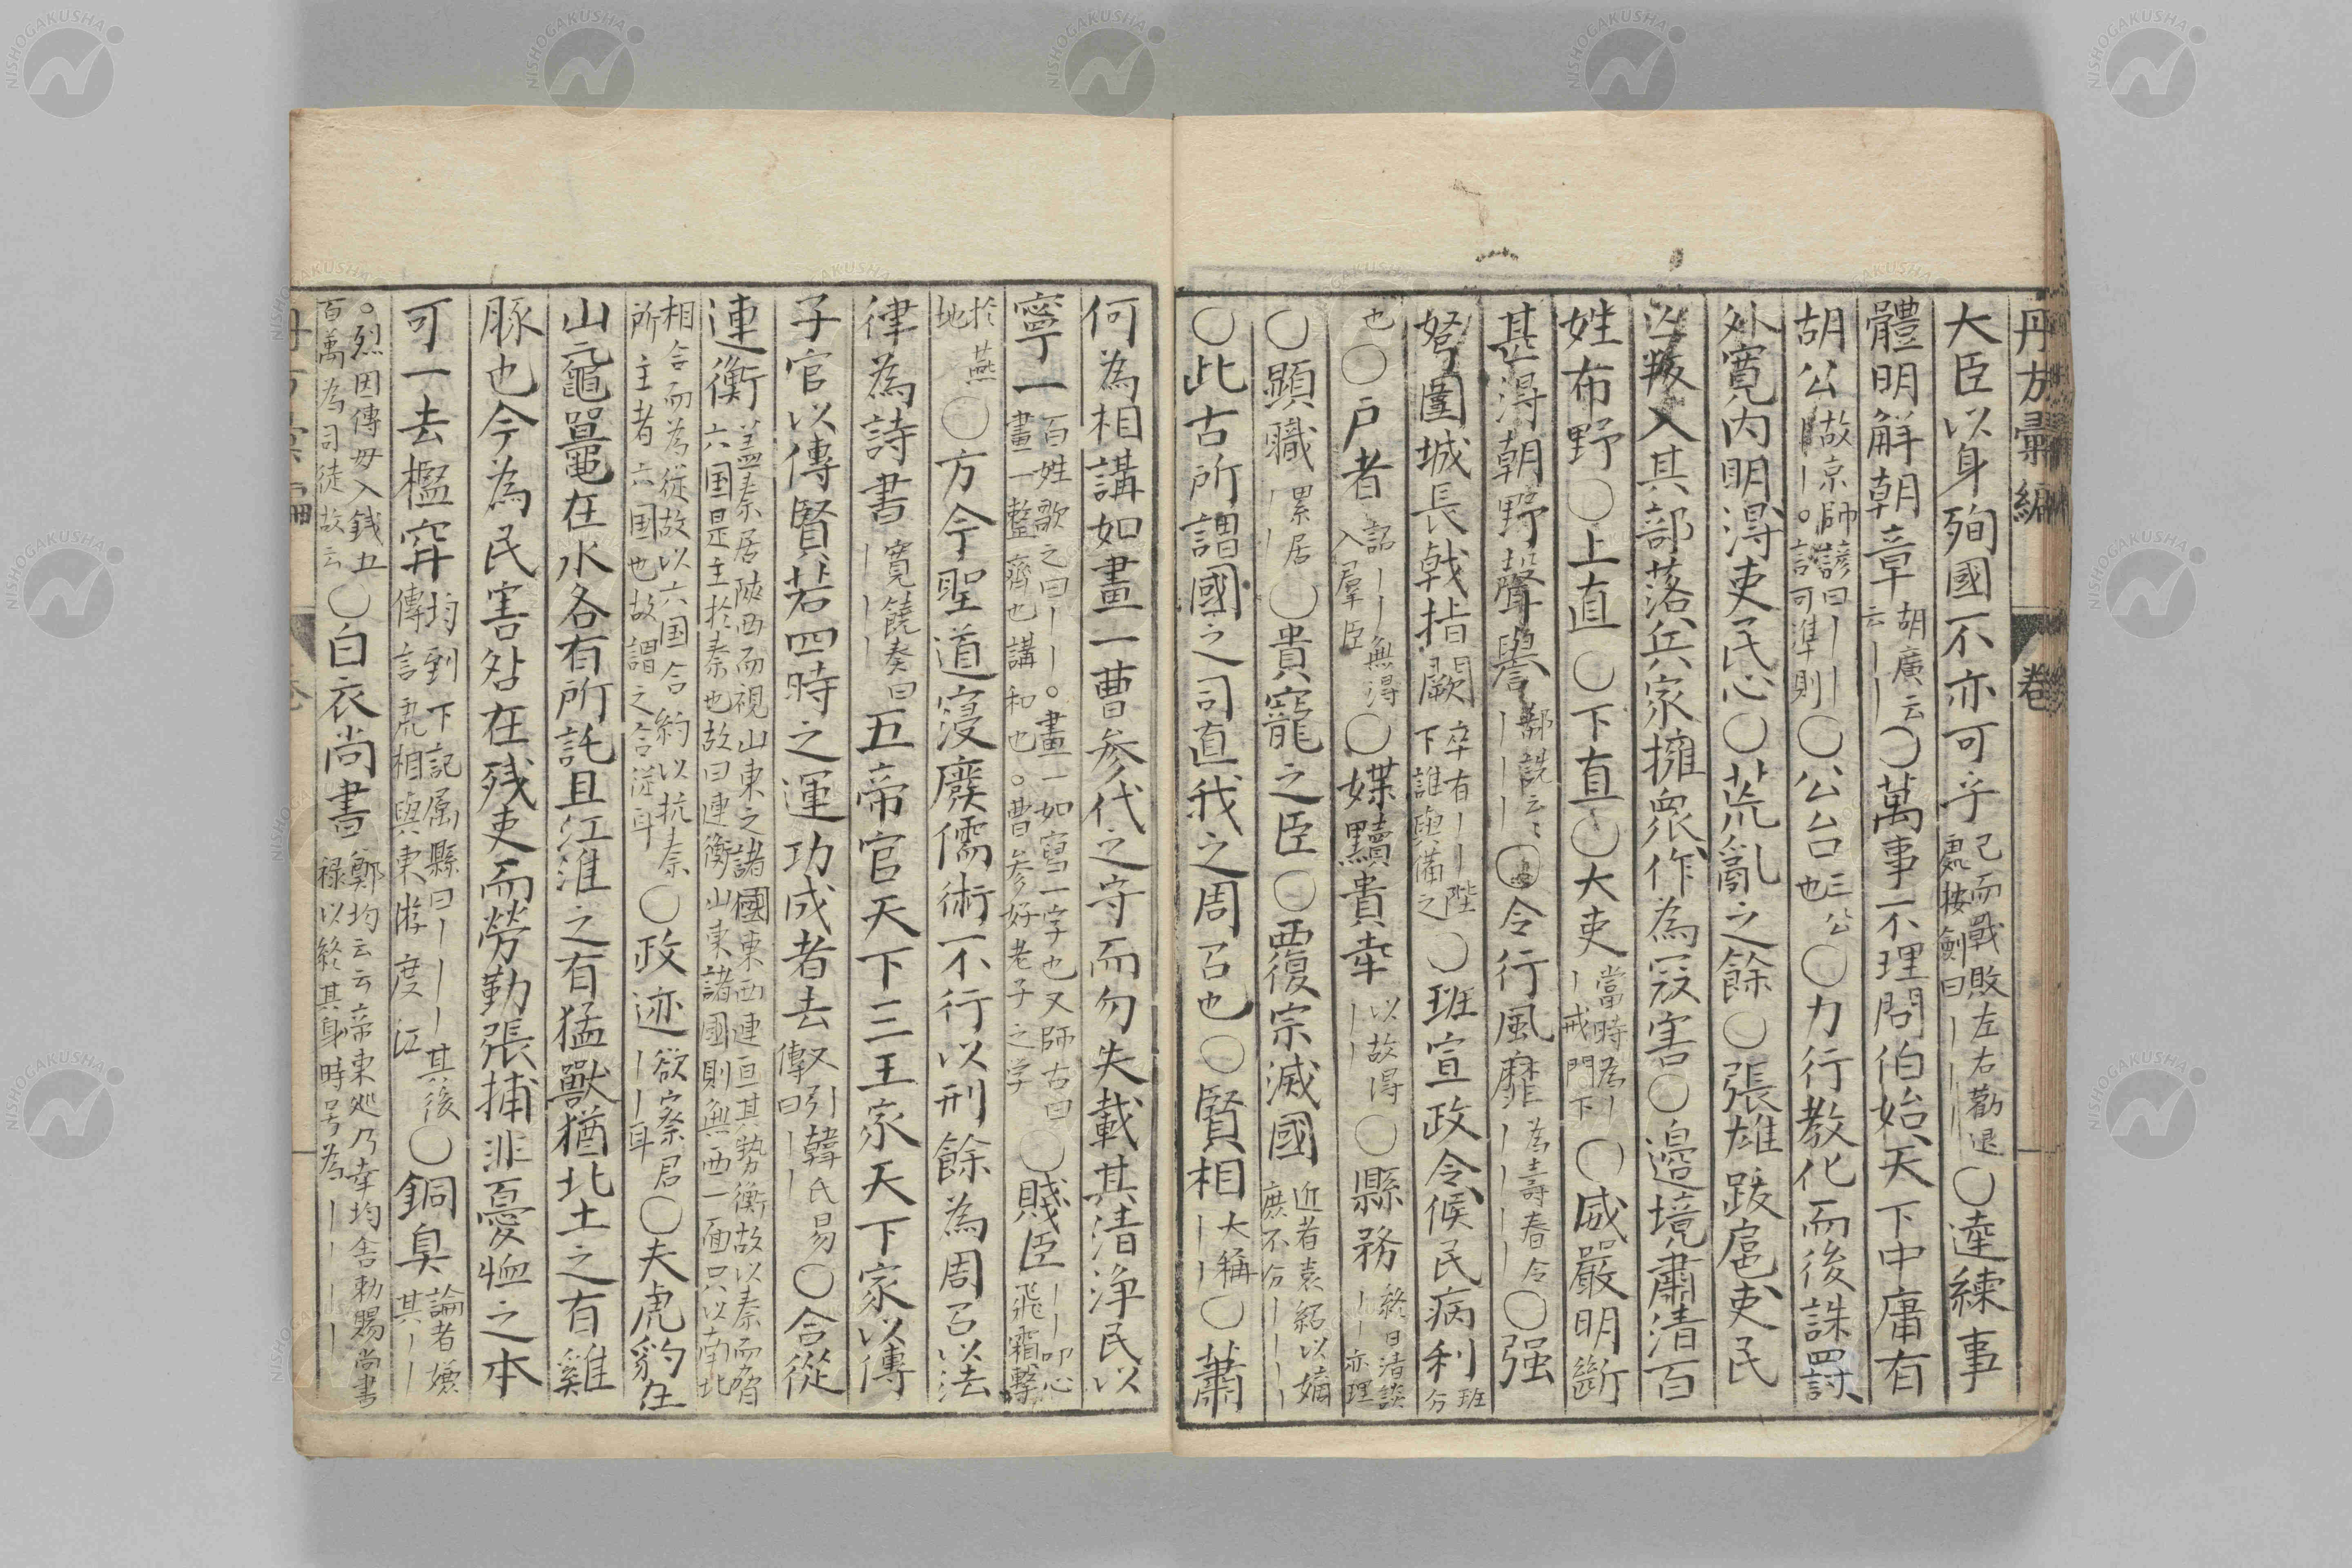 丹方彙編 卷
大臣以身殉國不亦可乎已而戰敗左右勸退彪按劍曰||||○達練事
體明解朝章胡廣云云||○萬事不理問伯始天下中庸有
胡公故京師諺曰||||。言可準則○公台三公也○力行教化而後誅罰
外寬內明得吏民心○荒亂之餘○張雄跋扈吏民
凶叛入其部落兵家擁衆作為寇害○邊境肅清百
姓布野○上直○下直○大吏當時為||戒門下○威嚴明斷
甚得朝野聲譽鄒詵云々||||○令行風靡為壽春令||||○强
弩圍城長戟指闕卒有||陛下誰與備之○班宣政令候民病利班分
也○戶者詔||無得入羣臣○媒黷貴幸以故得||○縣務終日清談||亦理
○顯職累居||○貴寵之臣○覆宗滅國近者袁紹以嫡庶不分||||
○此古所謂國之司直我之周召也○賢相大稱||○蕭
何為相講如畫一曹參代之守而勿失載其清浄民以
寧一百姓歌之曰||。畫一如寫一字也又師古曰畫一整齊也講和也。曹參好老子之学○賤臣||叩心飛霜擊
於燕地○方今聖道寖廢儒術不行以刑餘為周召以法
律為詩書寬饒奏曰||||五帝官天下三王家天下家以傳
子官以傳賢若四時之運功成者去又引韓氏易傳曰||○合從
連衡盖秦居陝西而視山東之諸國東西連亘其勢衡故以秦而脅六国是主於秦也故曰連衡山東諸國則無西一面只以南北
相合而為従故以六国合約以抗秦所主者六国也故謂之合従耳○政迹欲察君||耳○夫虎豹在
山黿鼉在水各有所託且江淮之有猛獸猶北土之有雞
豚也今為民害咎在残吏而勞勤張捕非憂恤之本
可一去檻穽均到下記属縣曰||||其後傳言虎相與東游度江○銅臭論者嫌其||
。烈因傳母入錢五百萬為司徒故云○白衣尚書鄭均云云帝東巡乃幸均舍勅賜尚書祿以終其身時号為||||